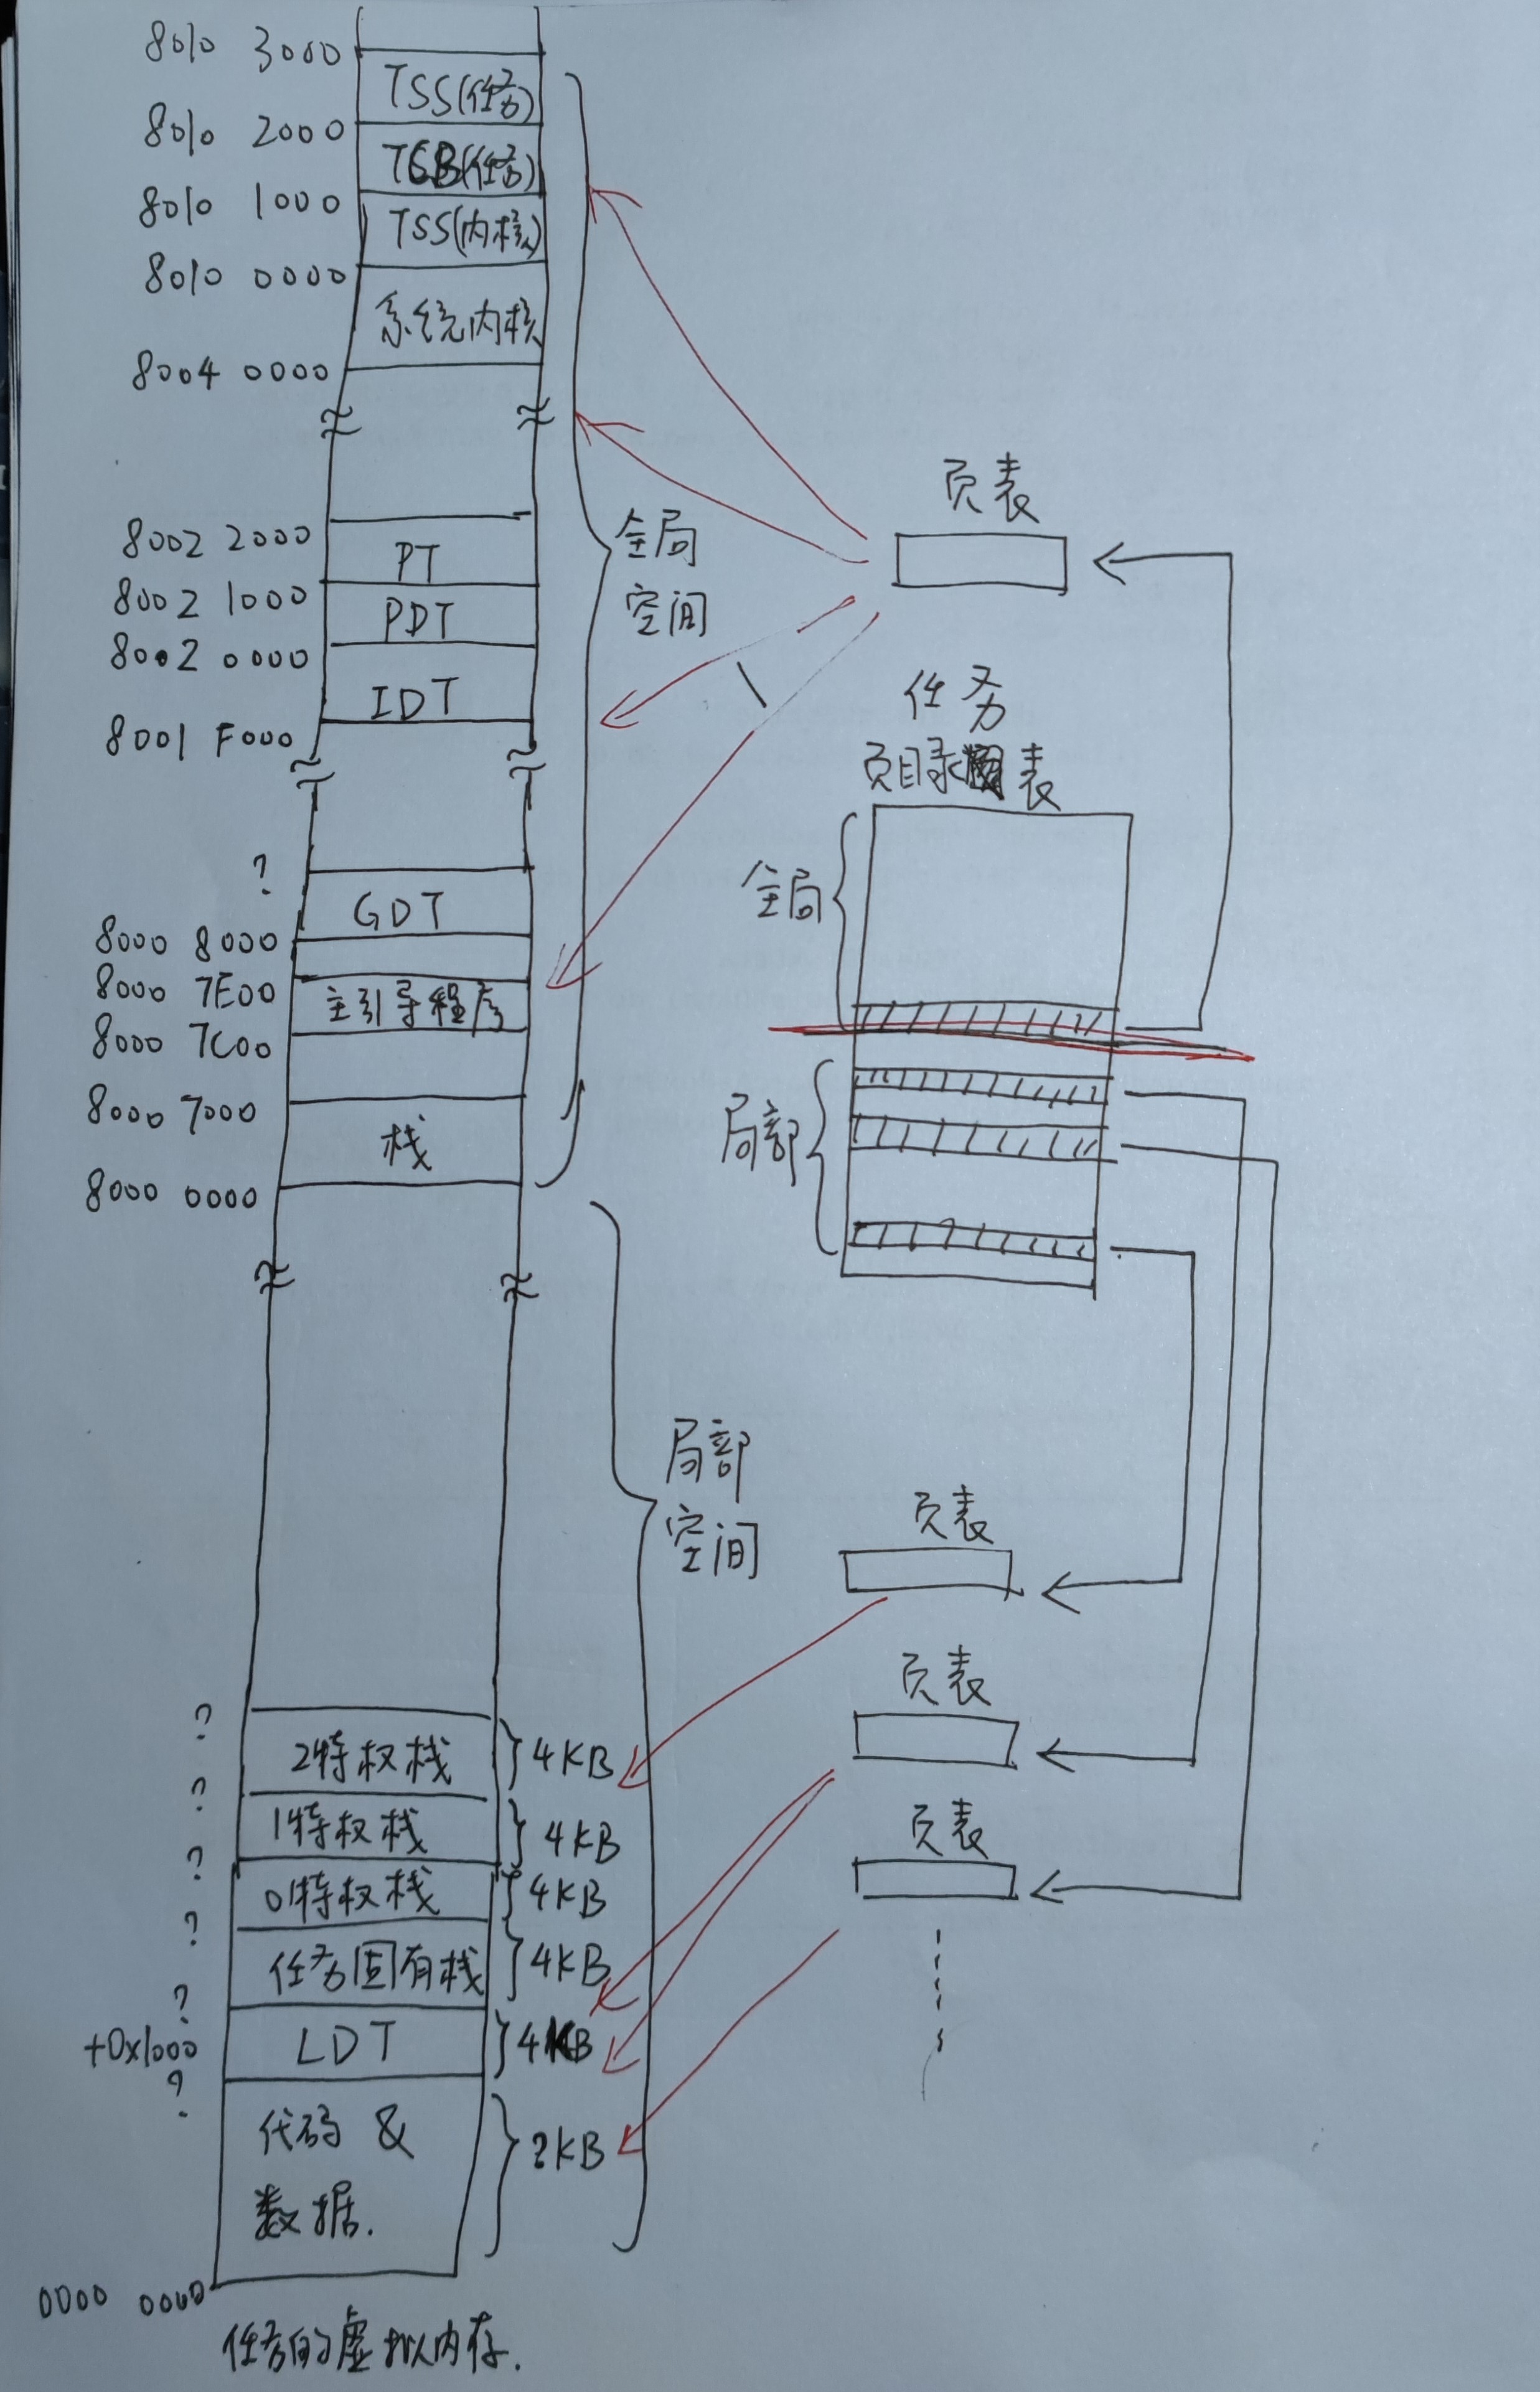 8010 3000
TSS(任务)
8010 2000
TCB(任务)
8010 1000
TSS(内核)
8010 0000
系统内核
8004 0000
8002 2000
PT
8002 1000
PDT
8002 0000
IDT
8001 F000
?
GDT
8000 8000
8000 7E00
主引导程序
8000 7C00
8000 7000
栈
8000 0000
全局
空间
页表
任务
页目录表
全局
局部
局部
空间
页表
页表
页表
?
2特权栈 4KB
?
1特权栈 4KB
?
0特权栈 4KB
?
任务固有栈 4KB
?
+0x1000
LDT 4KB
?
代码 &
数据.
?KB
0000 0000
任务的虚拟内存.